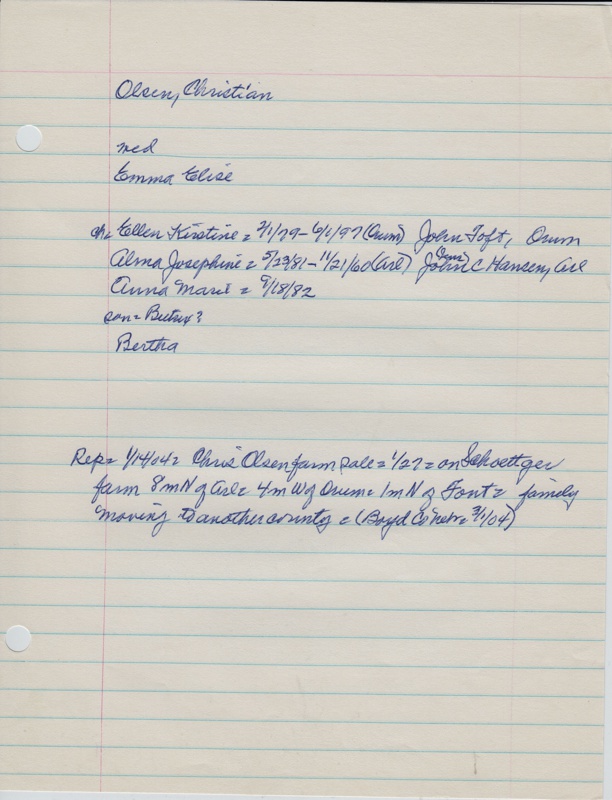 Olsen, Christian
med
Emma Elise
ch= Ellen Kirstine = 2/1/79 - 6/1/97 (Orum) John Toft, Orum
Alma Josephine = 5/23/81 - 11/21/60 (Arl) (Jens) John C Hansen, Arl
Anna Marie = 9/18/82
son=
Bertha
Rep= 1/14/04= Chris Olsen farm sale = 1/27 = on Schoettger
farm 8 m N of Arl= 4 m W of Orum= 1 m N of Font= family
moving to another county = (Boyd Co Nebr= 3/1/04)